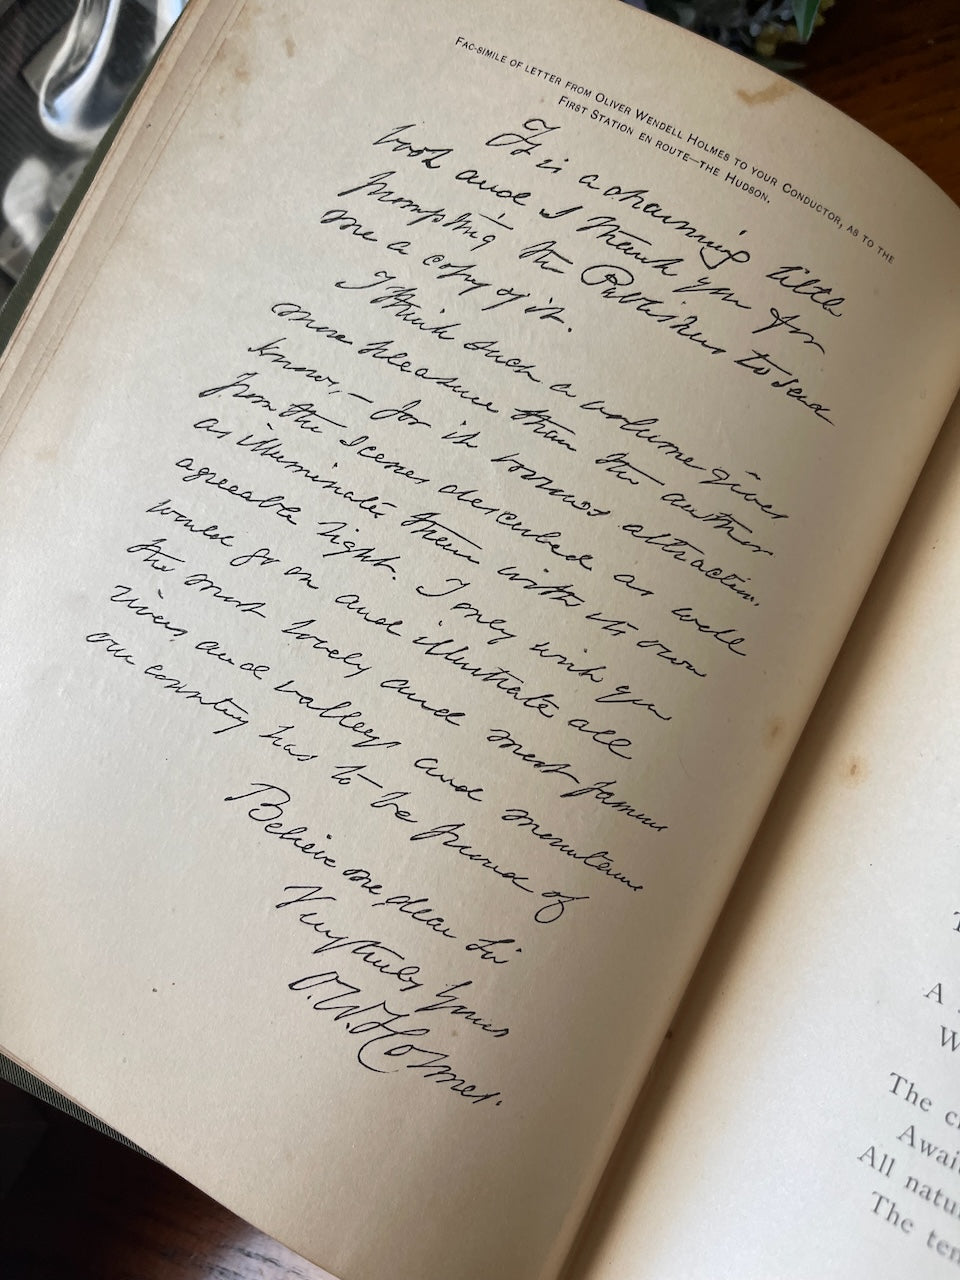 FAC-SIMILE OF LETTER FROM OLIVER WENDELL HOLMES TO YOUR CONDUCTOR, AS TO THE
FIRST STATION EN ROUTE—THE HUDSON.
It is a charming little
book and I thank you for
prompting the Publishers to send
me a copy of it.
I think such a volume gives
more pleasure than the author
knows,— for it borrows attraction
from the scenes described as well
as illuminates them with its own
agreeable light. I only wish you
would go on and illustrate all
the most lovely and most famous
rivers and valleys and mountains
our country has to be proud of
Believe me dear Sir
Very truly yours
O. W. Holmes.
A
W
The
Awai
All natu
The ten